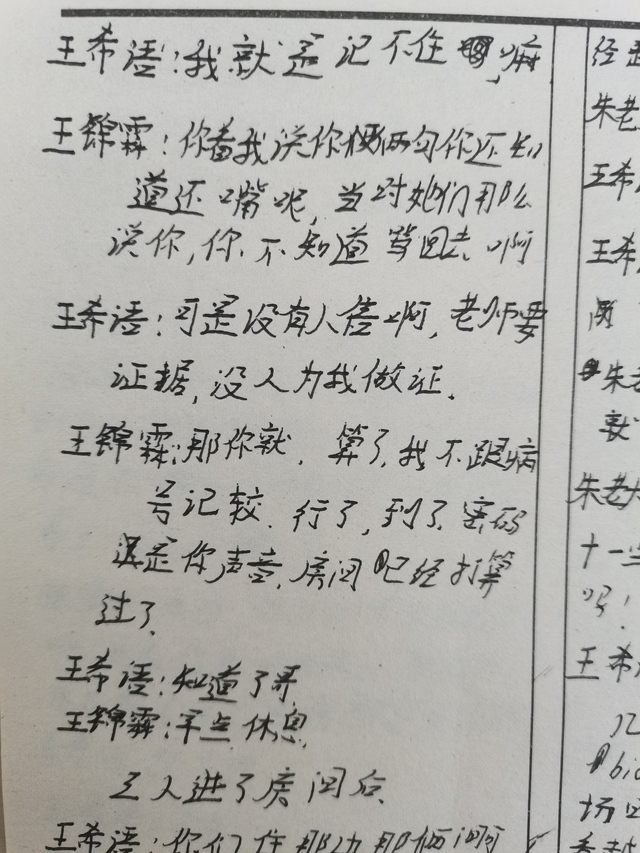 王希语:我就是记不住嘛
王锦霖:你看我说你两句你还知
道还嘴呢,当时她们那么
说你,你不知道骂回去啊
王希语:可是没有人信啊,老师要
证据,没人为我做证.
王锦霖:那你就.算了,我不跟病
号记较.行了,到了.密码
还是你声音.房间已经打算
过了.
王希语:知道了哥
王锦霖:早点休息.
三人进了房间后.
王希语:你们住那边那俩间啊
朱老
王希
王希
朱老
就
朱老大
十一
吗!
王希
几
场